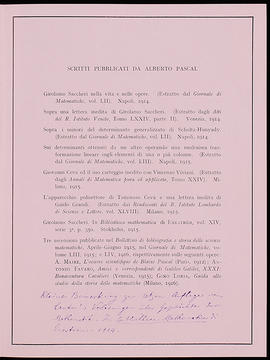 SCRITTI PUBBLICATI DA ALBERTO PASCAL
Girolamo Saccheri nella vita e nelle opere. (Estratto dal Giornale di
Matematiche, vol. LII). Napoli, 1914.
Sopra una lettera inedita di Girolamo Saccheri. (Estratto dagli Atti
del R. Istituto Veneto, Tomo LXXIV, parte II). Venezia, 1914.
Sopra i minori del determinante generalizzato di Scholtz-Hunyady.
(Estratto dal Giornale di Matematiche, vol. LII). Napoli, 1914.
Sui determinanti ottenuti da un altro operando una medesima tras-
formazione lineare sugli elementi di una o più colonne. (Estratto
dal Giornale di Matematiche, vol. LIII). Napoli, 1915.
Giovanni Ceva ed il suo carteggio inedito con Vincenzo Viviani. (Estratto
dagli Annali di Matematica pura ed applicata, Tomo XXIV). Mi-
lano, 1915.
L'apparecchio polisettore di Tommaso Ceva e una lettera inedita di
Guido Grandi. (Estratto dai Rendiconti del R. Istituto Lombardo
di Scienze e Lettere, vol. XLVIII). Milano, 1915.
Girolamo Saccheri. In Bibliotheca mathematica di ENESTRÖM, vol. XIV,
serie 3ª, p. 350. Stokholm, 1915.
Tre recensioni pubblicate nel Bollettino di bibliografia e storia delle scienze
matematiche, Aprile-Giugno 1915, ed nel Giornale di Matematiche, vo-
lume LIII, 1915; e LIV, 1916, rispettivamente sulle seguenti opere:
A. MAIRE, L'œuvre scientifique de Blaise Pascal (Paris, 1912); AN-
TONIO FAVARO, Amici e corrispondenti di Galileo Galilei, XXXI
Bonaventura Cavalieri (Venezia, 1915); GINO LORIA, Guida allo
studio della storia delle matematiche (Milano, 1916).
Kleine Bemerkung zur
Cantor's Vorlesungen über Geschichte der
Mathematik. In Bibliotheca Mathematica di
Eneström 1914.